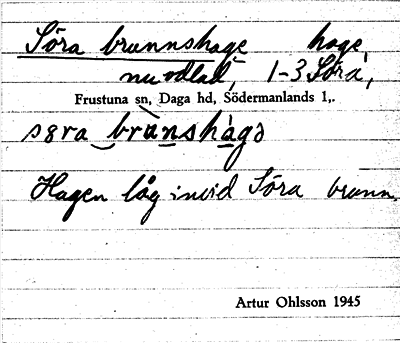 Söra brunnshage hage,
nu odlad, 1-3 Söra,
Frustuna sn, Daga hd, Södermanlands l,.
søra brùnshàgə
Hagen låg invid Söra brunn.
Artur Ohlsson 1945